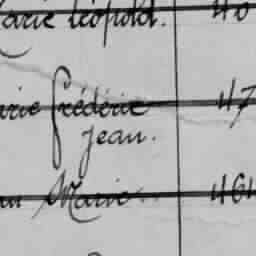 Marie Léopold. 40
arie frédéric 47
jean.
an Marie 464